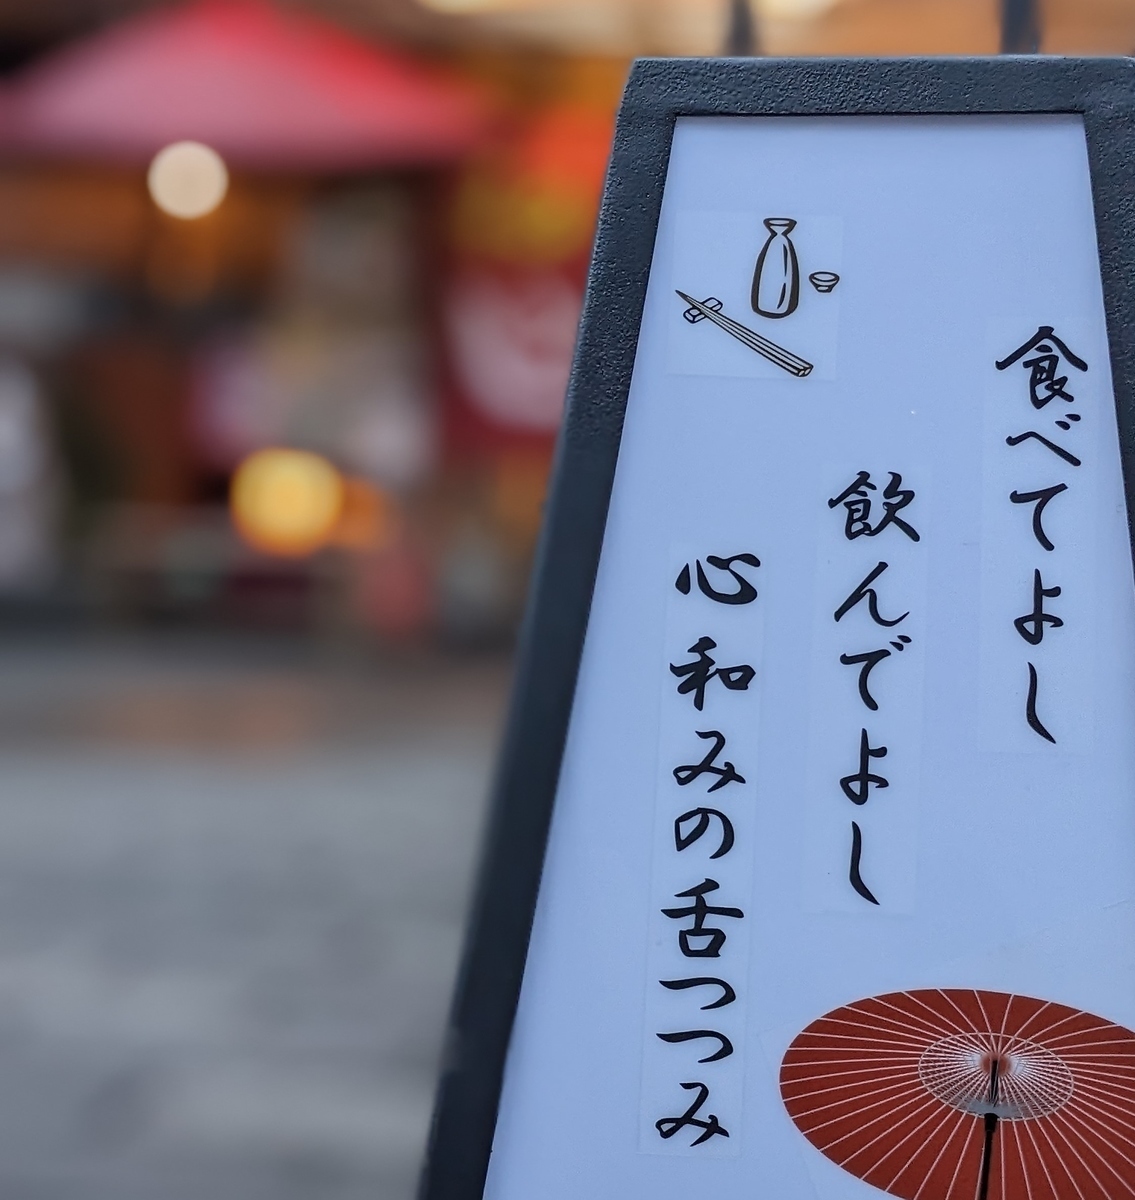 食べてよし
飲んでよし
心和みの舌つつみ